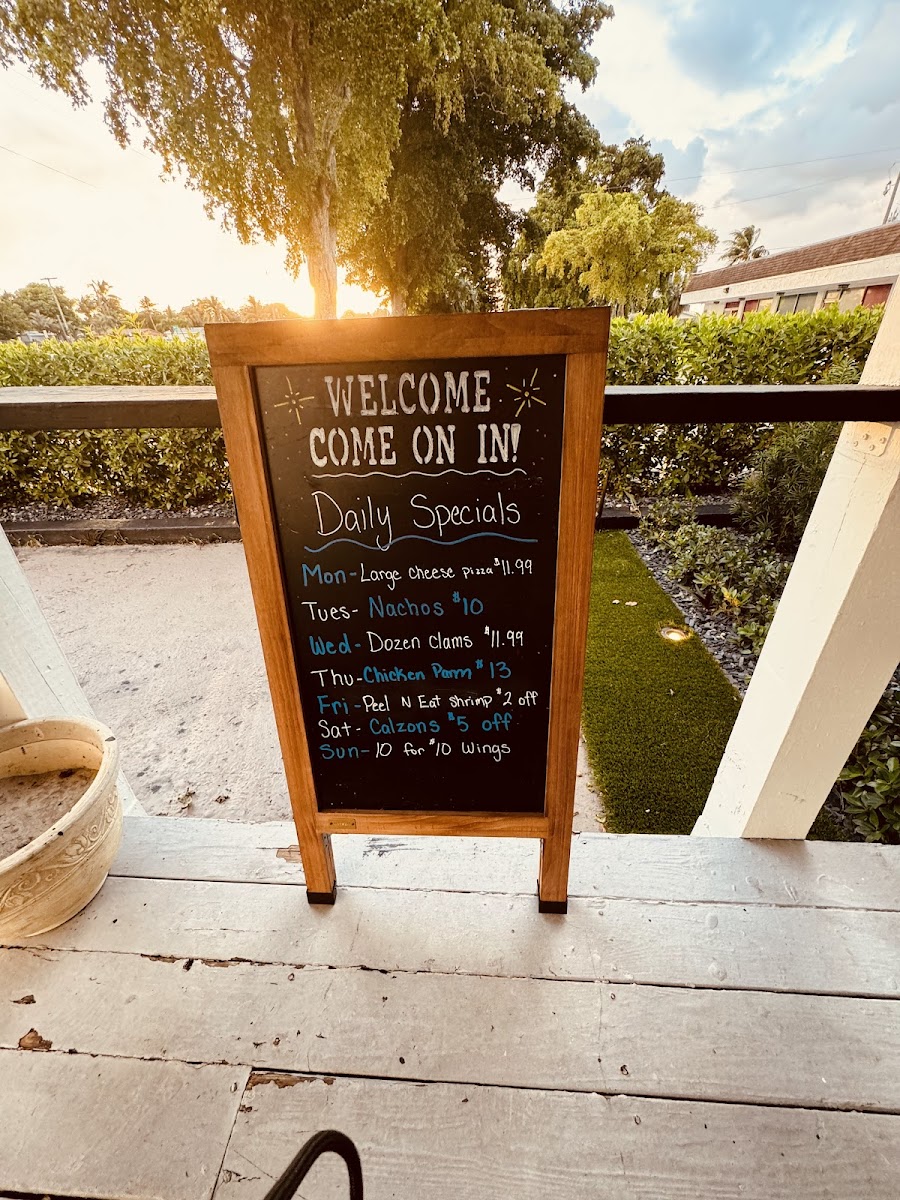 WELCOME
COME ON IN!
Daily Specials
Mon - Large cheese pizza $11.99
Tues - Nachos $10
Wed - Dozen Clams $11.99
Thu - Chicken Parm $13
Fri - Peel N Eat shrimp $2 off
Sat - Calzons $5 off
Sun - 10 for $10 Wings